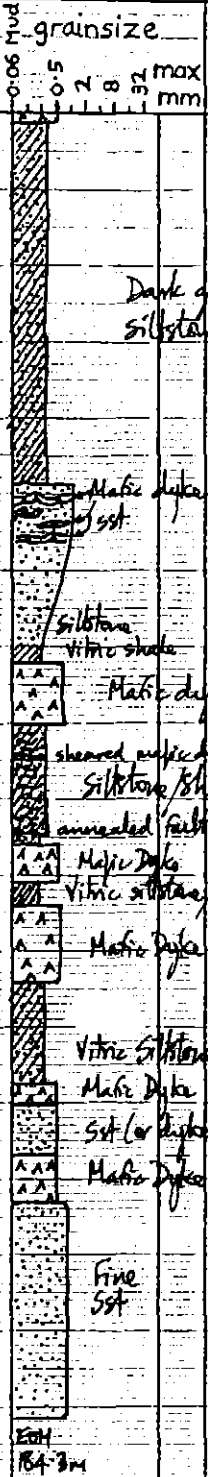 grainsize
Mud
0.06 0.5 2 8 32 max
mm
Dark
Siltsto
Mafic dyke
/sst
Siltstone
Vitric shale
Mafic
sheared mafic d
Siltstone/sh
annealed fault
Mafic Dyke
Vitric siltstone
Mafic Dyke
Vitric Siltstone
Mafic Dyke
Sst (or dyke
Mafic Dyke
Fine
Sst
EOH
184.3m